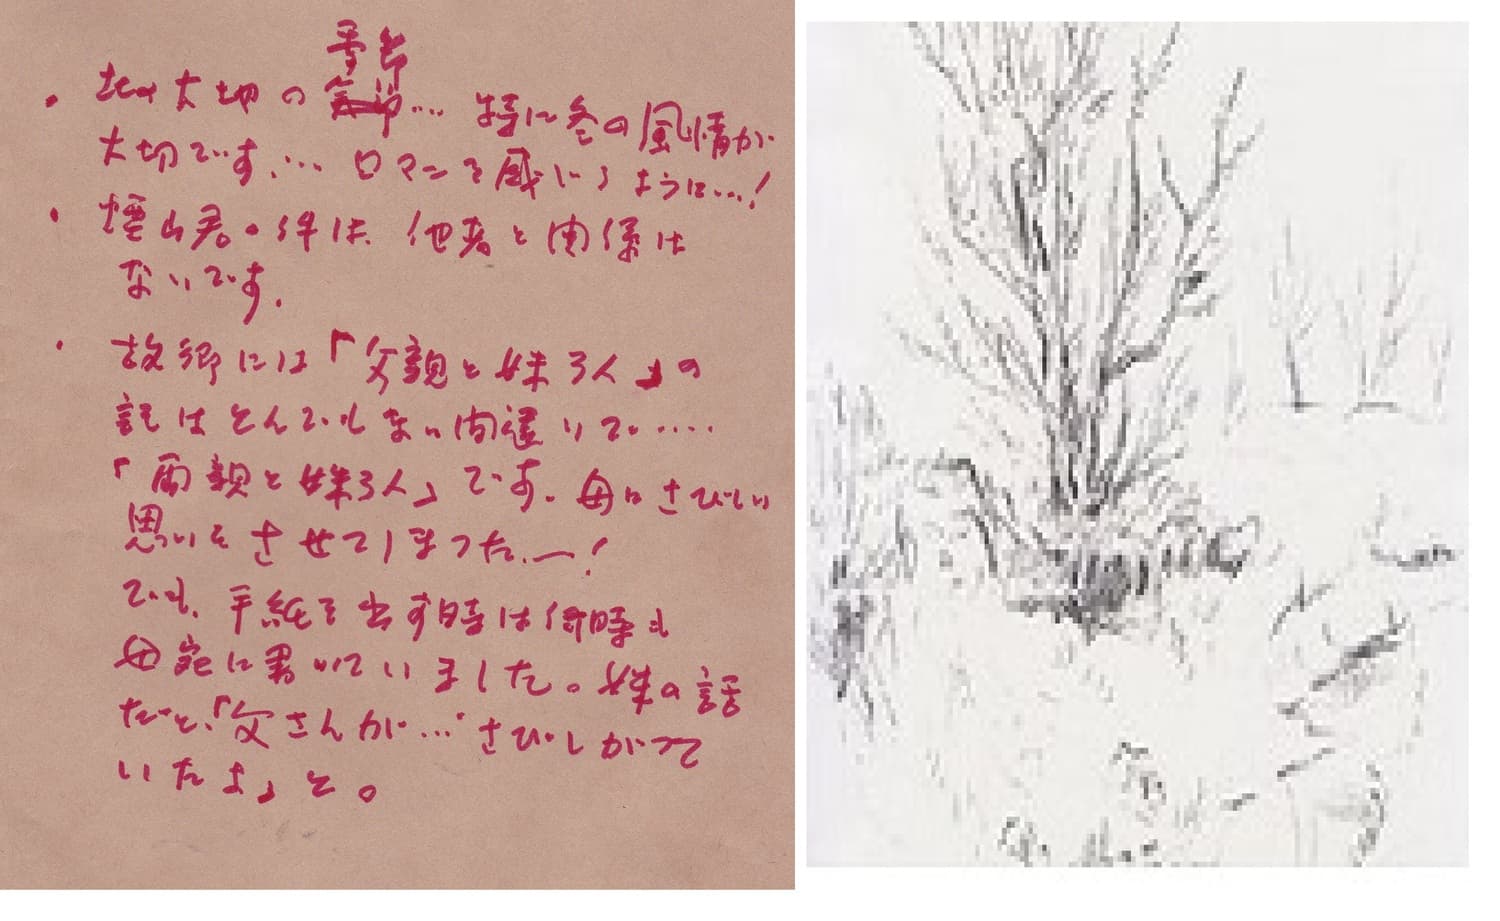 季節
・ 大切の … 特に冬の風情が
大切です、… ロマンを感じるように…!
・煙山君の件は、他者と関係は
ないです.
・故郷には「父親と妹3人」の
記はとんでもない間違いで….
「両親と妹3人」です。母にさびしい
思いをさせてしまった.ー!
でも、手紙を出す時は何時も
母宛に書いていました。妹の話
だと、「父さんが…さびしがって
いたよ」と。